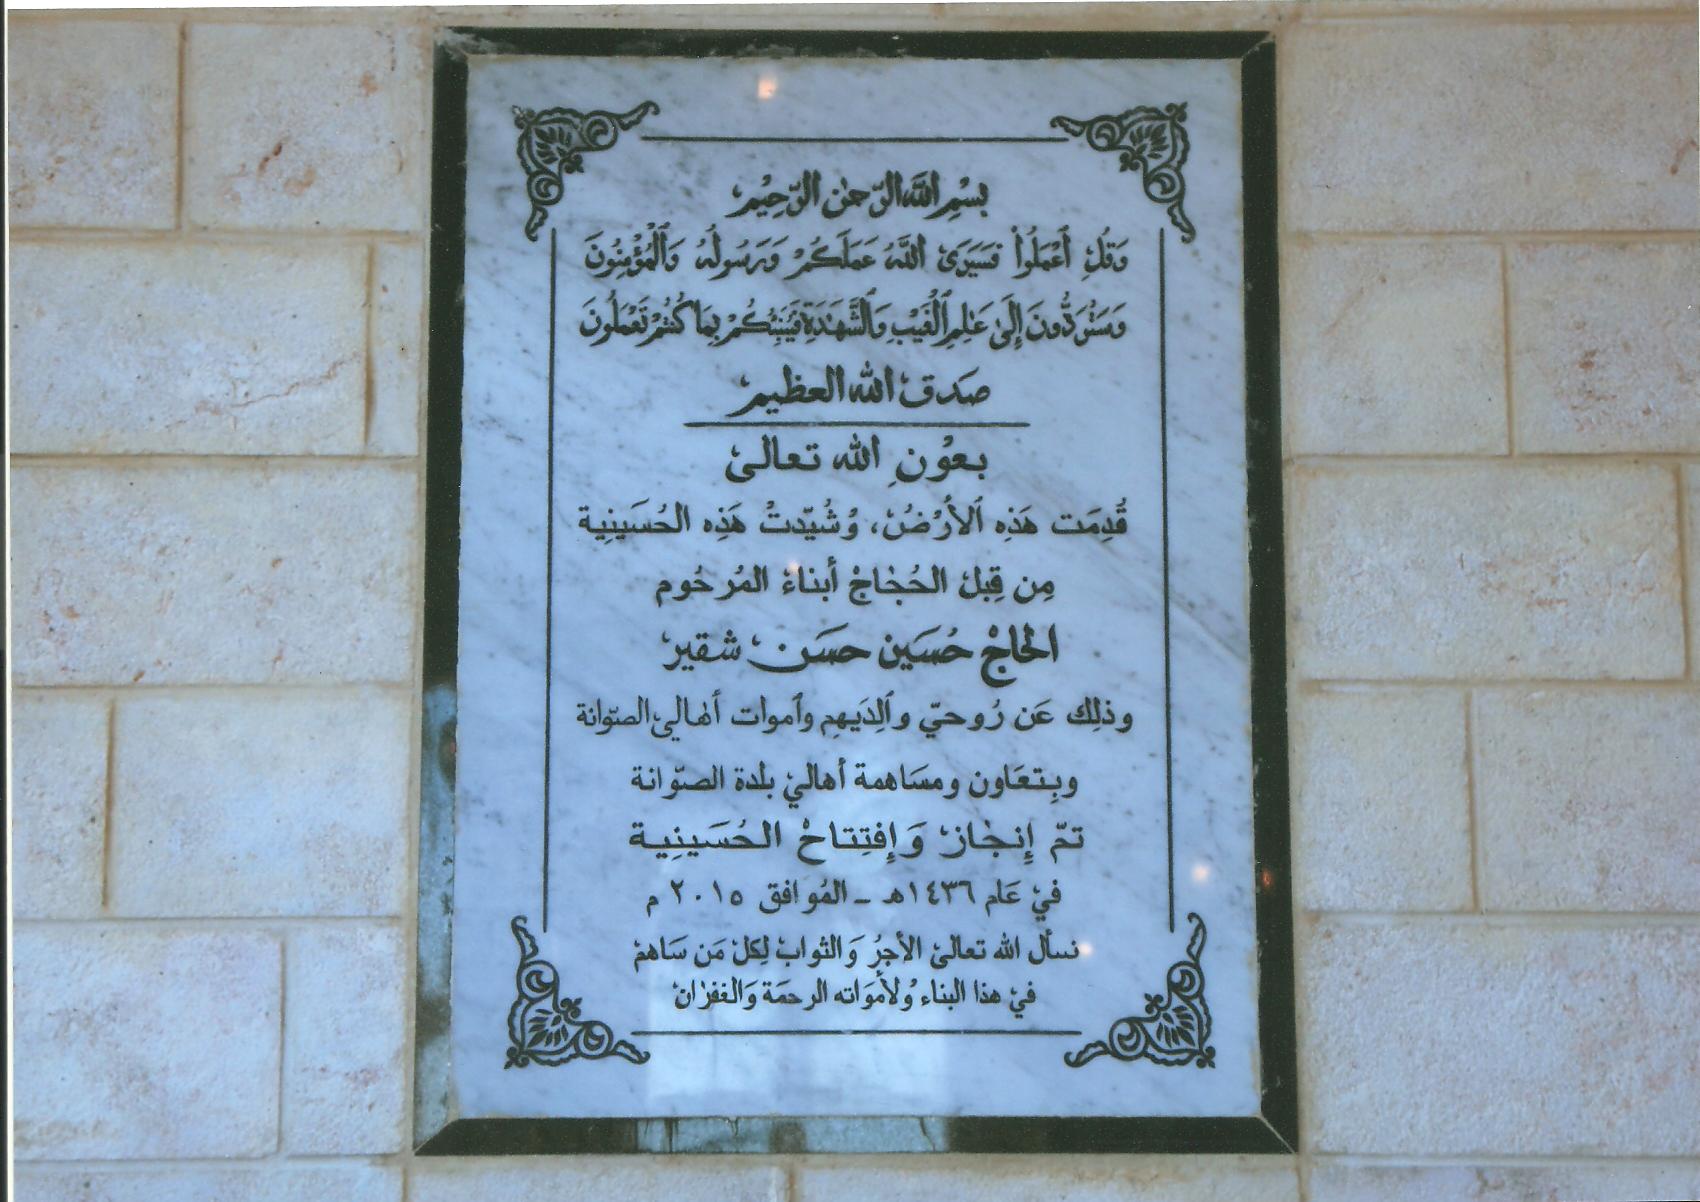 بِسْمِ اللَّهِ الرَّحمٰنِ الرَّحِيْم
وَقُلِ ٱعْمَلُوا۟ فَسَيَرَى ٱللَّهُ عَمَلَكُمْ وَرَسُولُهُ وَٱلْمُؤْمِنُونَ
وَسَتُرَدُّونَ إِلَىٰ عَٰلِمِ ٱلْغَيْبِ وَٱلشَّهَٰدَةِ فَيُنَبِّئُكُمْ بِمَا كُنْتُمْ تَعْمَلُونَ
صَدَقَ الله العظيم
بعوْنِ الله تعالىٰ
قُدِمَت هَذِهِ ٱلأرْضُ، وَشُيّدتْ هَذِه الحُسَينِية
مِن قِبلْ الحُجّاجْ أبناءْ المُرحُوم
الحاجْ حُسَين حسَن شقير
وذلِك عَن رُوحيّ وٱلِدَيهِم وأموات ألهالي الصّوّانة
وبِتعَاون ومسَاهمة أهالي بلدة الصّوّانة
تمّ إنجاز وَإفتِتاحْ الحُسَينِية
في عَام ١٤٣٦هـ - المُوَافق ٢٠١٥ م
نسأل الله تعالىٰ الأجرُ وَالثوابْ لِكلْ مَن سَاهمْ
في هذا البناء وَلأموَاته الرحمَة وَالغفرَان